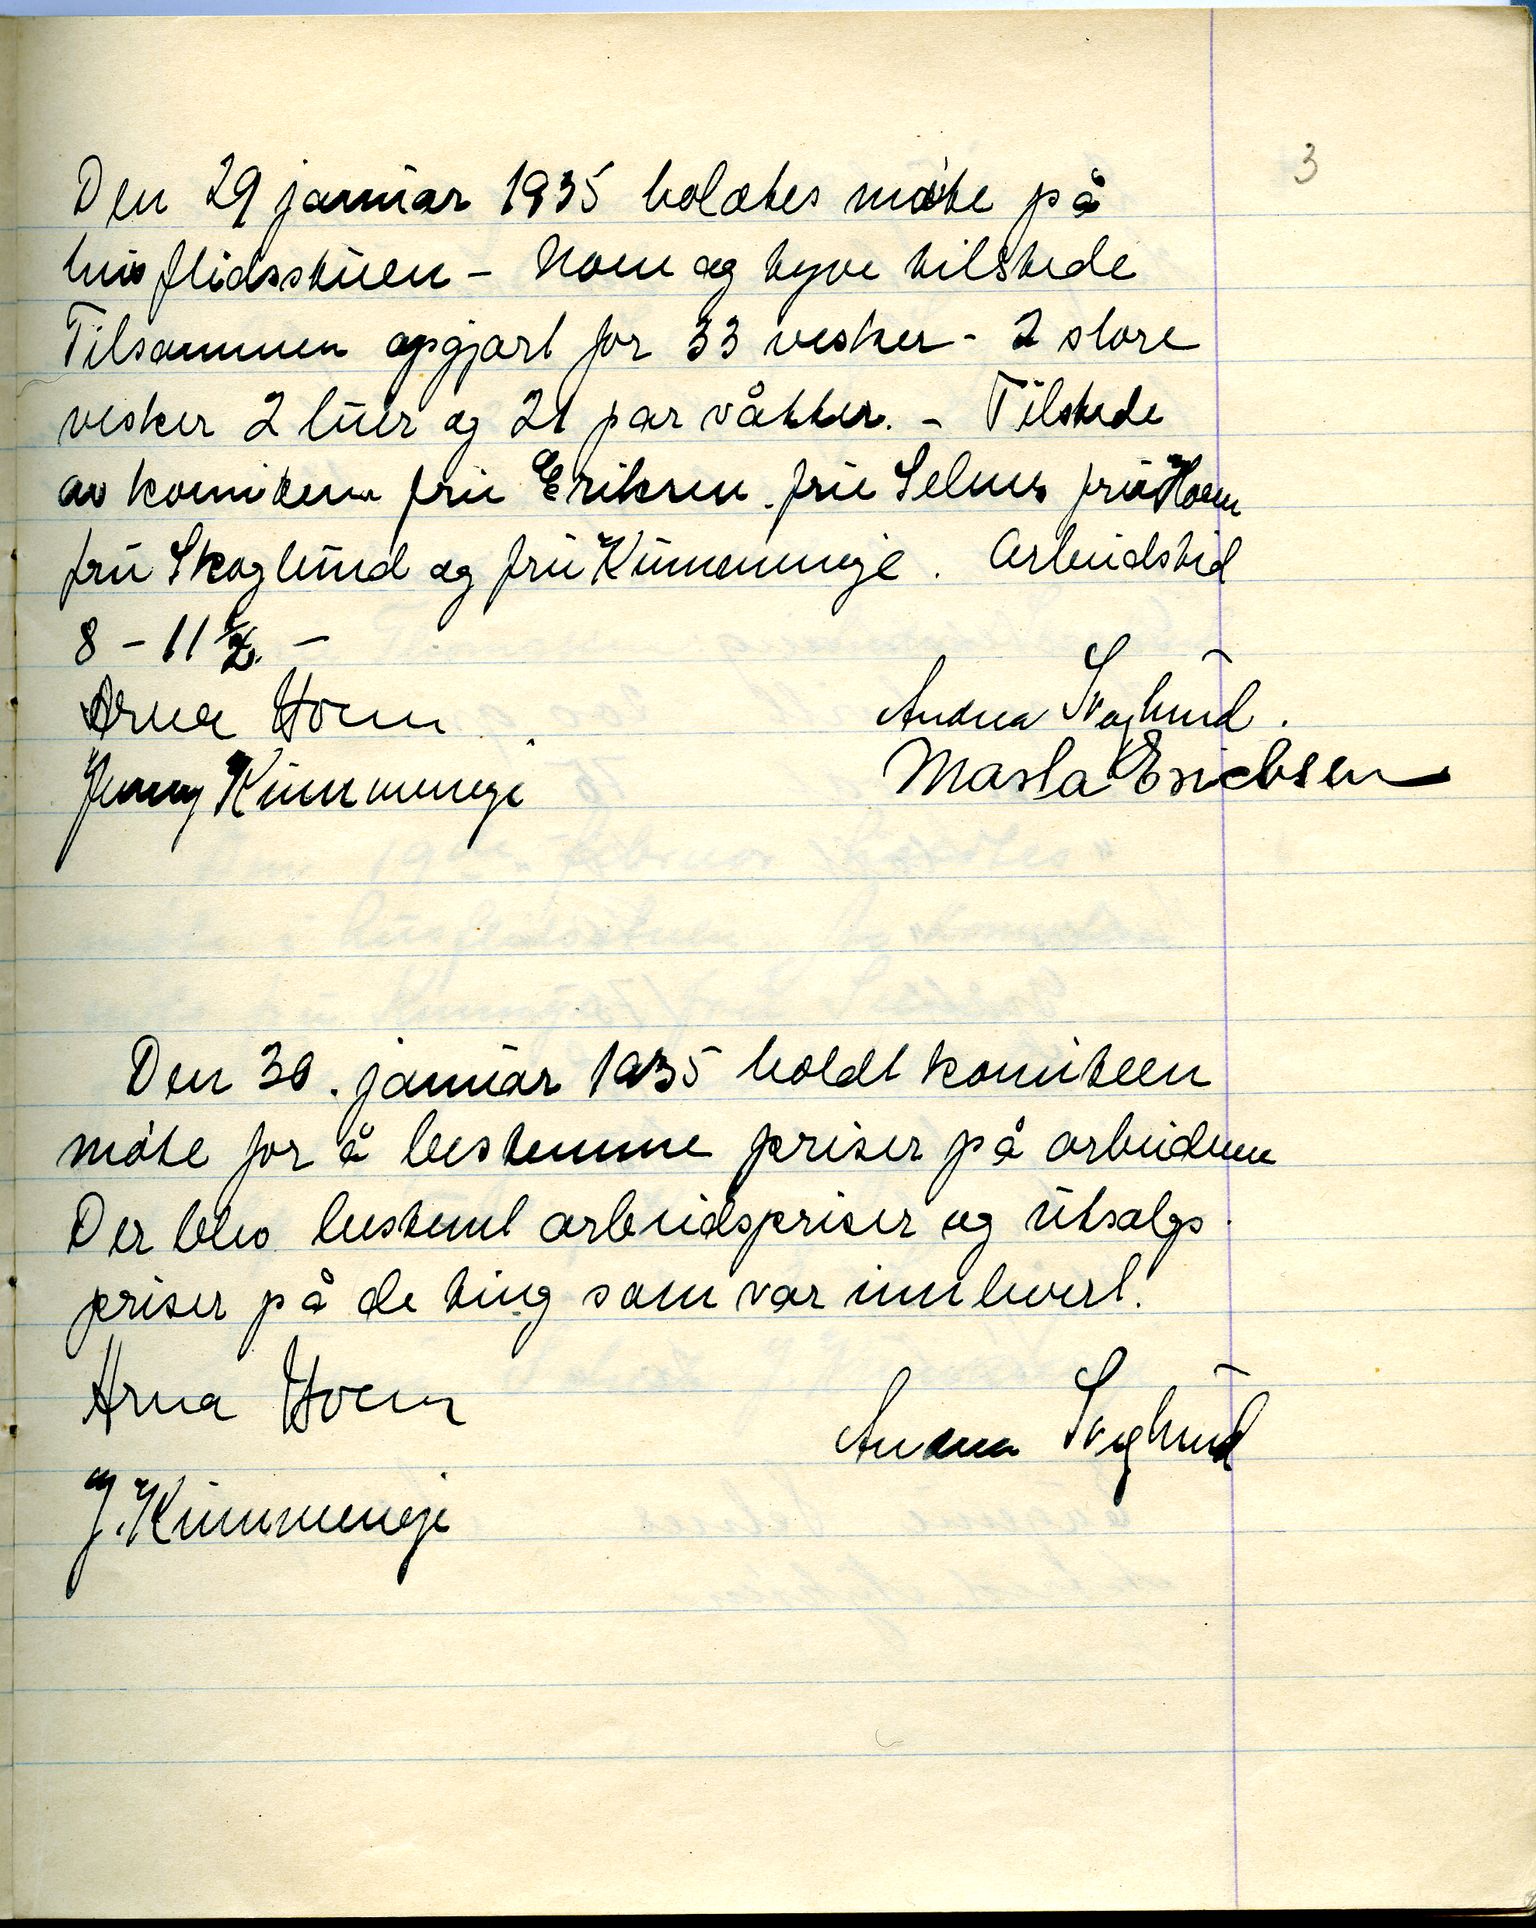 3
Den 29 januar 1935 holdtes møte på
husflidsstuen – Noen og tyve tilstede
Tilsammen opgjort for 33 vesker - 2 store
vesker 2 luer og 21 par våtter. – Tilstede
av komiteen fru Eriksen. fru Selnes fru Hoem
fru Skoglund og fru Kummeneje. Arbeidstid
8 – 11 1/2. –
Arna Hoem
Andrea Skoglund.
Jenny Kummeneje
Marta Erichsen
Den 30. januar 1935 holdt komiteen
møte for å bestemme priser på arbeidene
Der blev bestemt arbeidspriser og utsalgs
priser på de ting som var innlevert.
Arna Hoem
Andrea Skoglund
J. Kummeneje